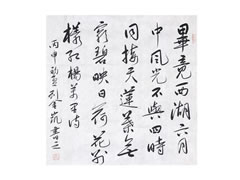 畢竟西湖六月
中風光不與四時
同接天蓮葉無
窮碧映日荷花別
樣紅楊萬里詩
丙申